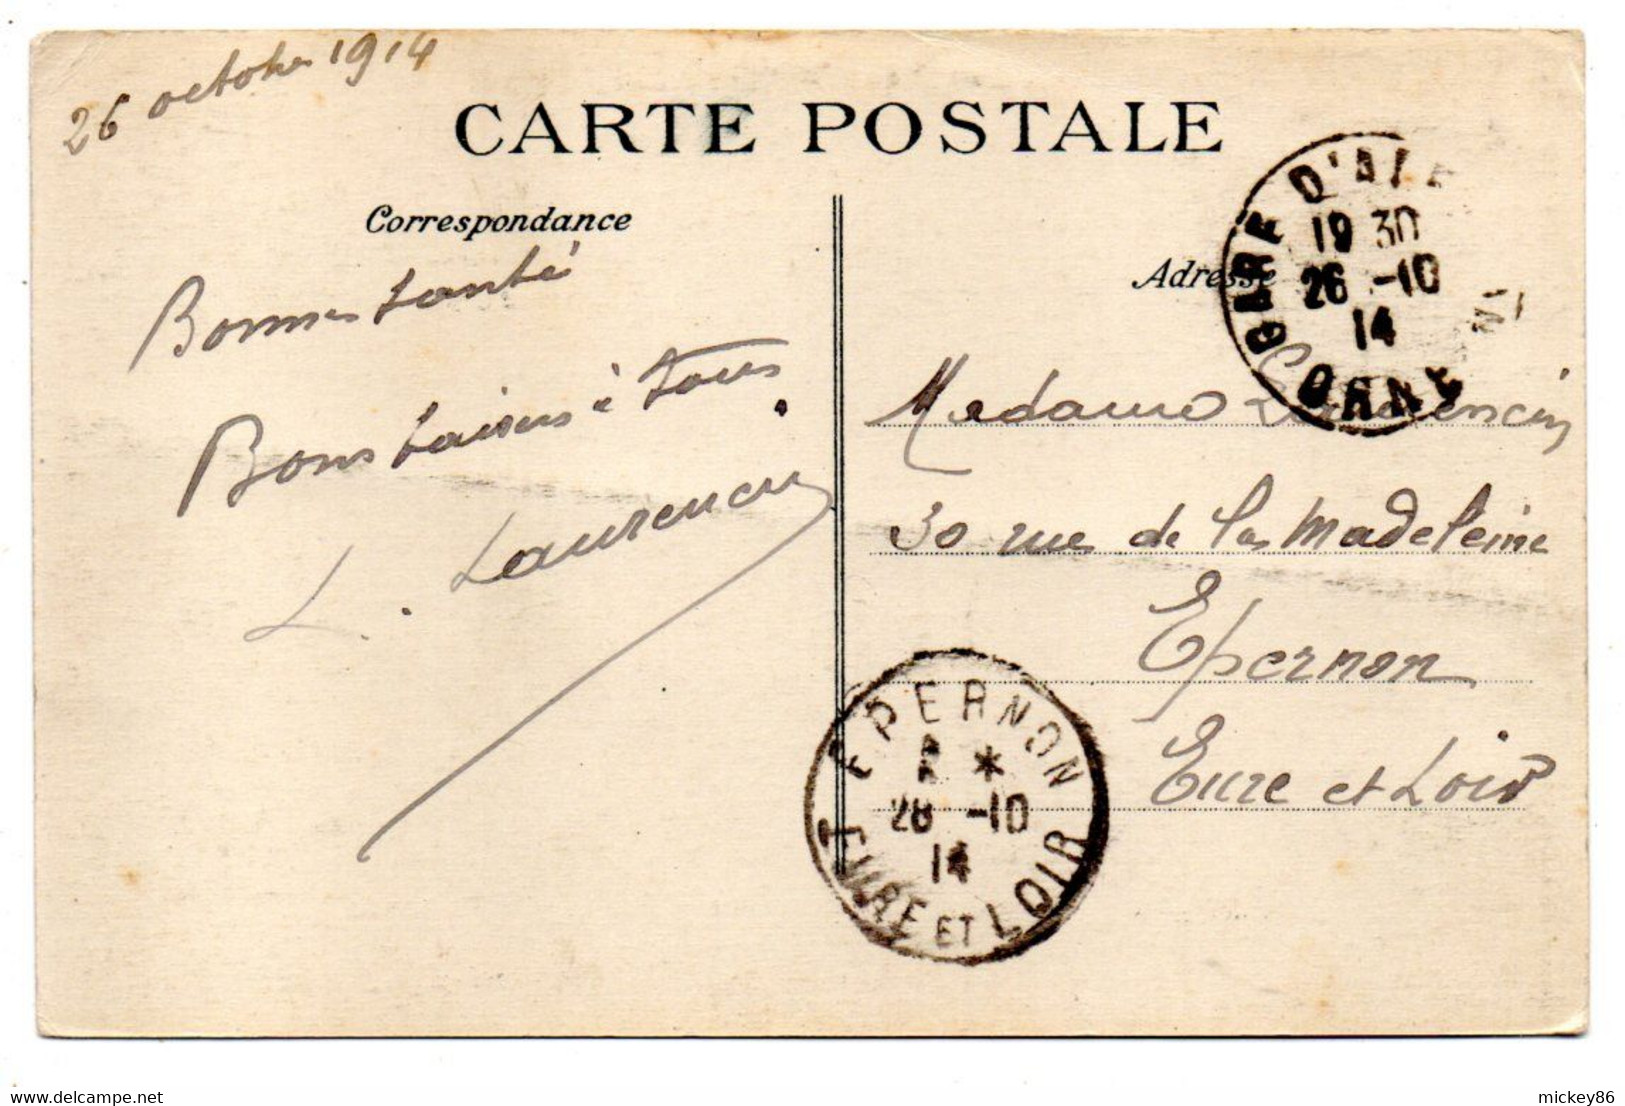 26 octobre 1914
CARTE POSTALE
Correspondance
Adresse
Bonne santé
Bons baisers à tous
L. Laurencin
GARE D'ALE
19 30
26 -10
14
ORNE
Madame Laurencin
30 rue de la Madeleine
Epernon
Eure et Loir
EPERNON
*
28 -10
14
EURE ET LOIR
delcampe.net
mickey86